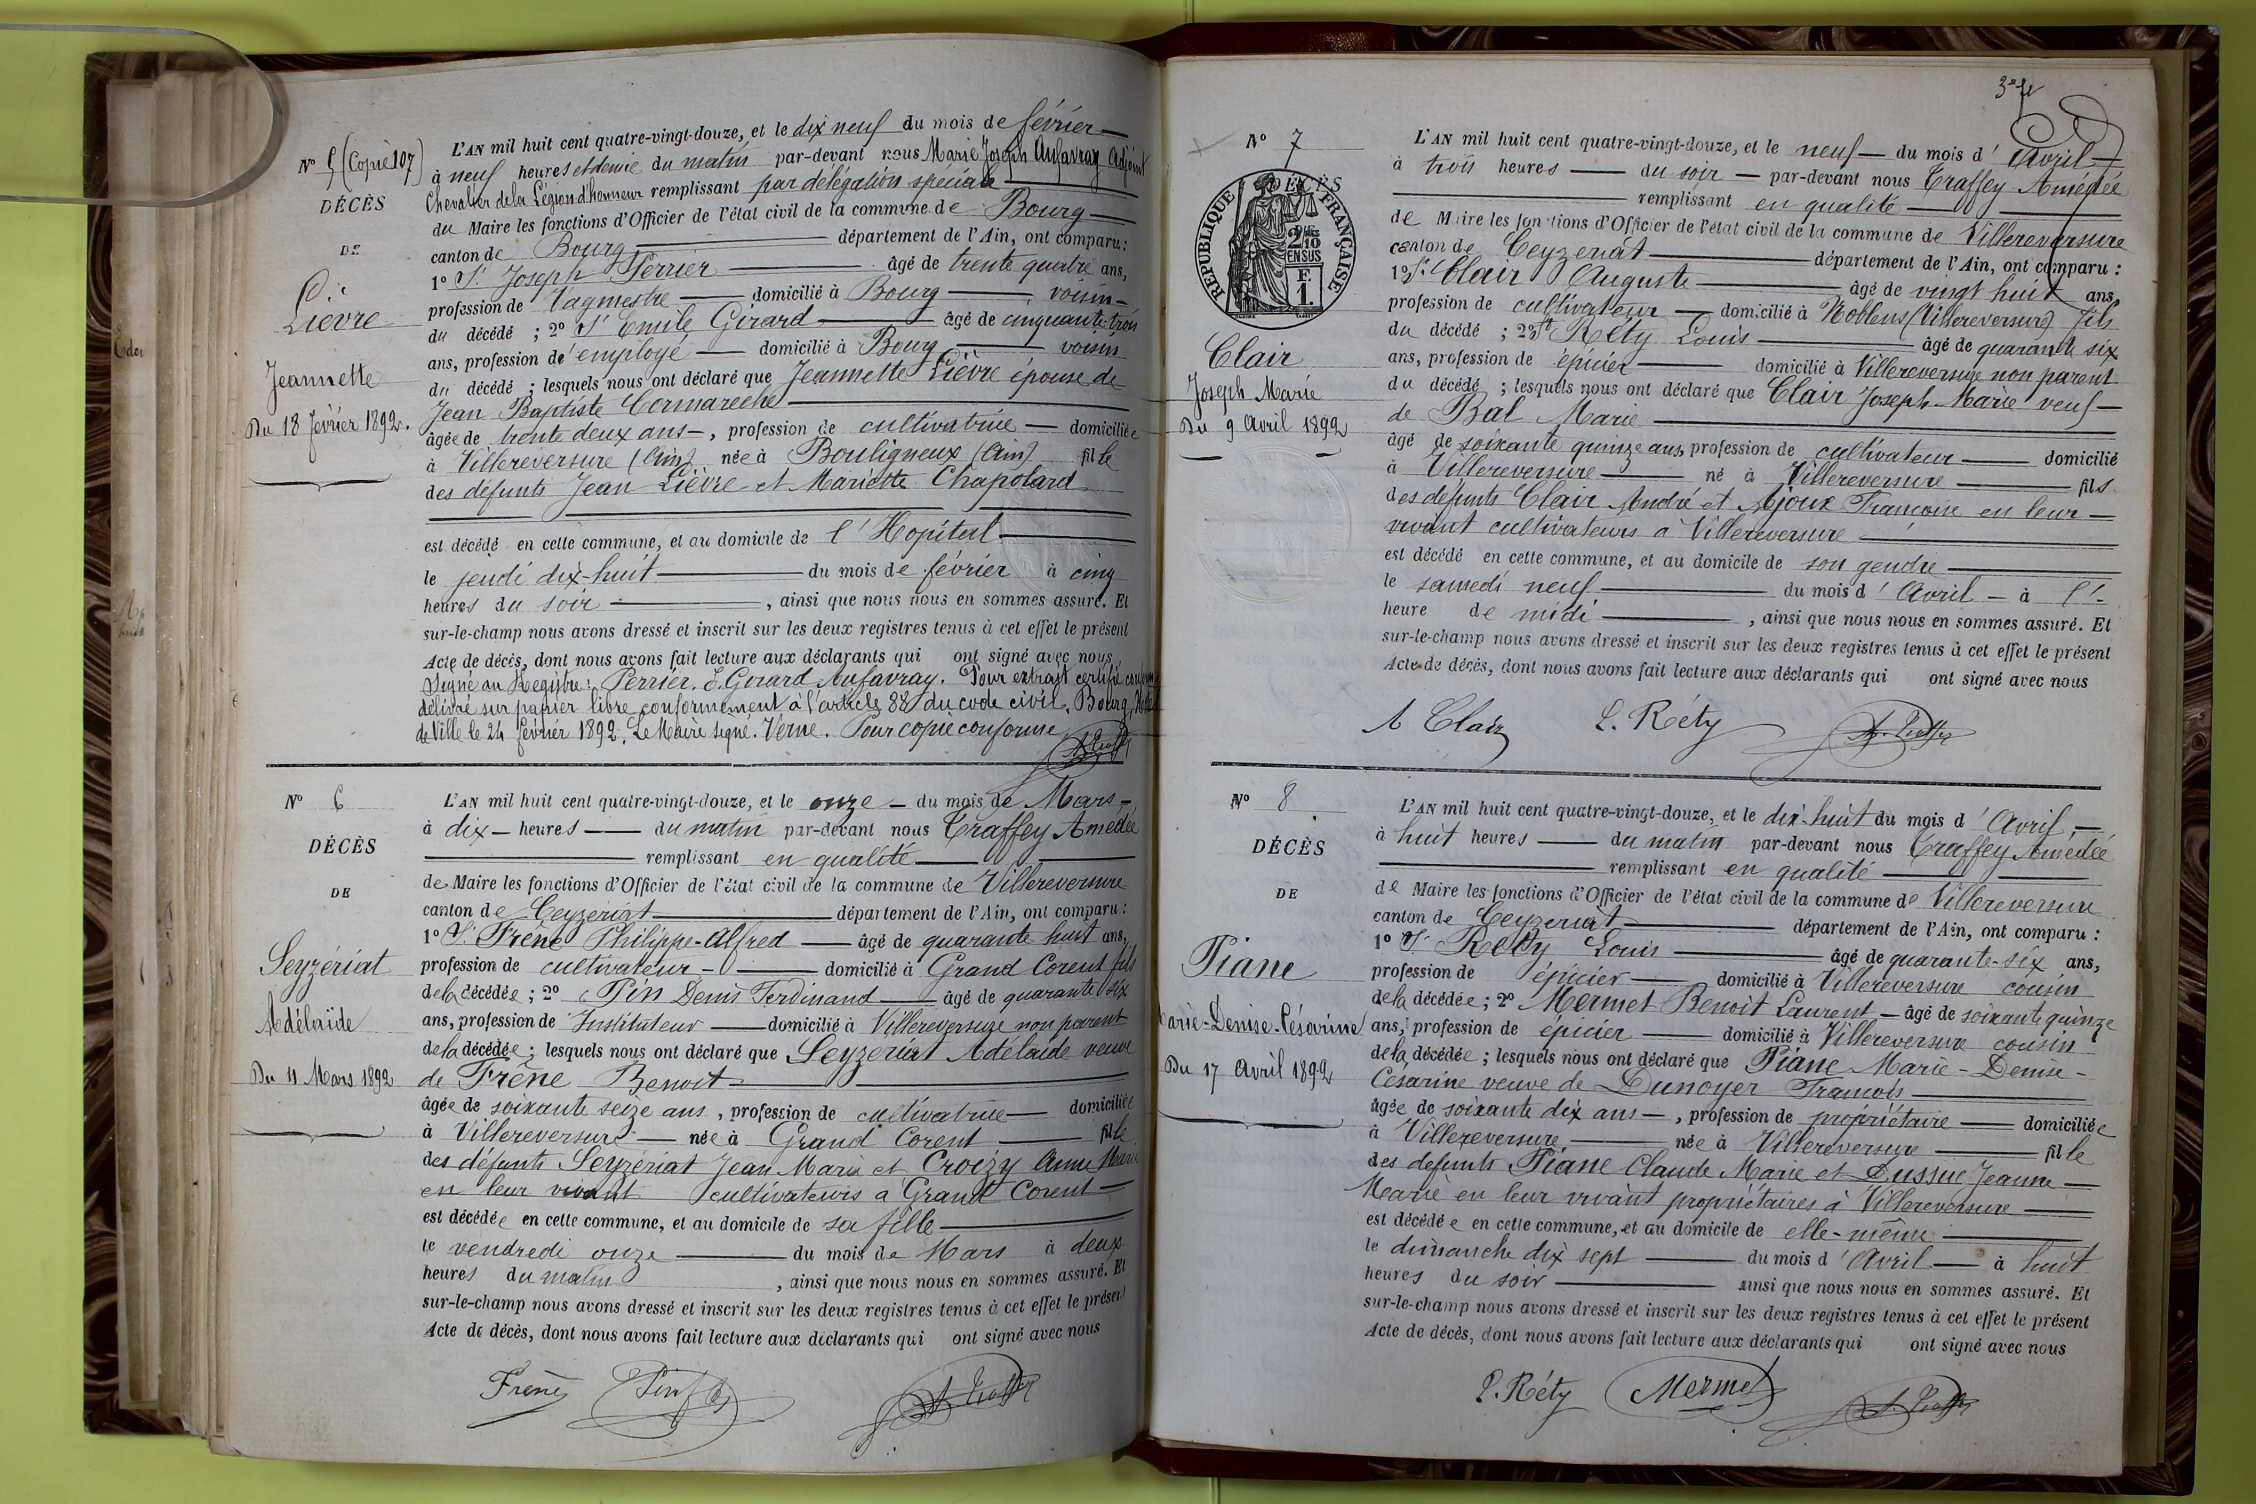 N° 5 (Copie 107)
DÉCÈS
DE
Lièvre
Jeannette
Du 18 février 1892.
L'AN mil huit cent quatre-vingt-douze, et le dix neuf du mois de février
à neuf heures et demie du matin par-devant nous Marie Joseph Aufavray Adjoint
Chevalier de la Légion d'honneur remplissant par délégation spéciale
du Maire les fonctions d'Officier de l'état civil de la commune de Bourg
canton de Bourg département de l'Ain, ont comparu :
1° Sr Joseph Perrier âgé de trente quatre ans,
profession de Vagmestre domicilié à Bourg voisin
du décédé ; 2° Sr Emile Girard âgé de cinquante-trois
ans, profession de employé domicilié à Bourg voisin
du décédé ; lesquels nous ont déclaré que Jeannette Lièvre épouse de
Jean Baptiste Cormareche
âgée de trente deux ans, profession de cultivatrice domiciliée
à Villereversure (Ain) née à Bouligneux (Ain) fille
des défunts Jean Lièvre et Mariette Chapolard
est décédé en cette commune, et au domicile de l'Hopital
le jeudi dix-huit du mois de février à cinq
heures du soir, ainsi que nous nous en sommes assuré. Et
sur-le-champ nous avons dressé et inscrit sur les deux registres tenus à cet effet le présent
Acte de décès, dont nous avons fait lecture aux déclarants qui ont signé avec nous
Signé au Registre : Perrier. E. Girard Aufavray. Pour extrait certifié conforme
délivré sur papier libre conformément à l'article 82 du code civil. Bourg, Hôtel
de Ville le 24 février 1892. Le Maire signé. Verne. Pour copie conforme
N° 6
DÉCÈS
DE
Seyzériat
Adélaïde
Du 11 Mars 1892
L'AN mil huit cent quatre-vingt-douze, et le onze du mois de Mars
à dix heures du matin par-devant nous Traffey Amédée
remplissant en qualité
de Maire les fonctions d'Officier de l'état civil de la commune de Villereversure
canton de Ceyzériat département de l'Ain, ont comparu :
1° Sr Frêne Philippe-Alfred âgé de quarante huit ans,
profession de cultivateur domicilié à Grand Corent fils
de la décédée ; 2° Pin Denis Ferdinand âgé de quarante six
ans, profession de Instituteur domicilié à Villereversure non parent
de la décédée ; lesquels nous ont déclaré que Seyzériat Adélaïde veuve
de Frêne Benoit
âgée de soixante seize ans, profession de cultivatrice domiciliée
à Villereversure née à Grand Corent fille
des défunts Seyzériat Jean Marie et Croizy Anne Marie
en leur vivant cultivateurs à Grand Corent
est décédée en cette commune, et au domicile de sa fille
le vendredi onze du mois de Mars à deux
heures du matin, ainsi que nous nous en sommes assuré. Et
sur-le-champ nous avons dressé et inscrit sur les deux registres tenus à cet effet le présent
Acte de décès, dont nous avons fait lecture aux déclarants qui ont signé avec nous
Frêne Pin
N° 7
DÉCÈS
RÉPUBLIQUE FRANÇAISE
2/10
EN SUS
F.
1.
Clair
Joseph Marie
Du 9 Avril 1892
L'AN mil huit cent quatre-vingt-douze, et le neuf du mois d'Avril
à trois heures du soir par-devant nous Traffey Amédée
remplissant en qualité
de Maire les fonctions d'Officier de l'état civil de la commune de Villereversure
canton de Ceyzériat département de l'Ain, ont comparu :
1° Sr Clair Auguste âgé de vingt huit ans,
profession de cultivateur domicilié à Noblens (Villereversure) fils
du décédé ; 2° Sr Réty Louis âgé de quarante six
ans, profession de épicier domicilié à Villereversure non parent
du décédé ; lesquels nous ont déclaré que Clair Joseph-Marie veuf
de Bal Marie
âgé de soixante quinze ans, profession de cultivateur domicilié
à Villereversure né à Villereversure fils
des défunts Clair André et Ajoux Françoise en leur
vivant cultivateurs à Villereversure
est décédé en cette commune, et au domicile de son gendre
le samedi neuf du mois d'Avril à l'
heure de midi, ainsi que nous nous en sommes assuré. Et
sur-le-champ nous avons dressé et inscrit sur les deux registres tenus à cet effet le présent
Acte de décès, dont nous avons fait lecture aux déclarants qui ont signé avec nous
A Clair L. Réty
N° 8
DÉCÈS
DE
Piane
Marie-Denise-Césarine
Du 17 Avril 1892
L'AN mil huit cent quatre-vingt-douze, et le dix-huit du mois d'Avril
à huit heures du matin par-devant nous Traffey Amédée
remplissant en qualité
de Maire les fonctions d'Officier de l'état civil de la commune de Villereversure
canton de Ceyzériat département de l'Ain, ont comparu :
1° Sr Réty Louis âgé de quarante-six ans,
profession de épicier domicilié à Villereversure cousin
de la décédée ; 2° Mermet Benoit Laurent âgé de soixante quinze
ans, profession de épicier domicilié à Villereversure cousin
de la décédée ; lesquels nous ont déclaré que Piane Marie-Denise-
Césarine veuve de Dunoyer François
âgée de soixante dix ans, profession de propriétaire domiciliée
à Villereversure née à Villereversure fille
des défunts Piane Claude Marie et Dussuc Jeanne
Marie en leur vivant propriétaires à Villereversure
est décédée en cette commune, et au domicile de elle-même
le dimanche dix sept du mois d'Avril à huit
heures du soir ainsi que nous nous en sommes assuré. Et
sur-le-champ nous avons dressé et inscrit sur les deux registres tenus à cet effet le présent
Acte de décès, dont nous avons fait lecture aux déclarants qui ont signé avec nous
L. Réty Mermet